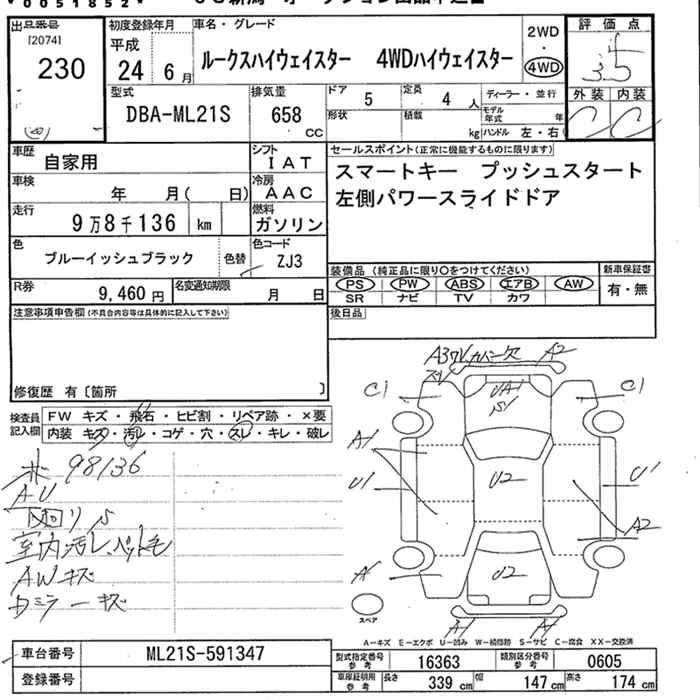 0051852
出品番号
[2074]
230
初度登録年月
平成
24 6月
車名・グレード
ルークスハイウェイスター 4WDハイウェイスター
2WD
・
4WD
評価点
3.5
外装 内装
C C
型式
DBA-ML21S
排気量
658
CC
ドア 5
定員 4 人
ディーラー・並行
形状
積載 kg
モデル年式 年
ハンドル 左・右
車歴
自家用
シフト
IAT
車検
年 月( 日)
冷房
AAC
走行
9万8千136 km
燃料
ガソリン
色
ブルーイッシュブラック
色替
色コード
ZJ3
R券
9,460 円
名変通知期限
月 日
セールスポイント(正常に機能するものに限ります)
スマートキー プッシュスタート
左側パワースライドドア
装備品 (純正品に限り○をつけてください)
新車保証書
PS PW ABS エアB AW
有・無
SR ナビ TV カワ
後日品
注意事項申告欄(不具合内容等は具体的に記入して下さい)
修復歴 有〔箇所 〕
検査員
記入欄
FW キズ・飛石・ヒビ割・リペア跡・×要
内装 キズ・汚レ・コゲ・穴・スレ・キレ・破レ
98136
AU
室内汚レ、ペット毛
AWキズ
カバー欠
A2
C1
C1
UA1
A1
U1
U2
U1
A2
U2
A1
スペア
A-キズ E-エクボ U-凹み W-補修跡 S-サビ C-腐食 XX-交換済
車台番号
ML21S-591347
登録番号
型式指定番号
参考
16363
類別区分番号
参考
0605
車庫証明用
参考
長さ 339 cm
幅 147 cm
高さ 174 cm